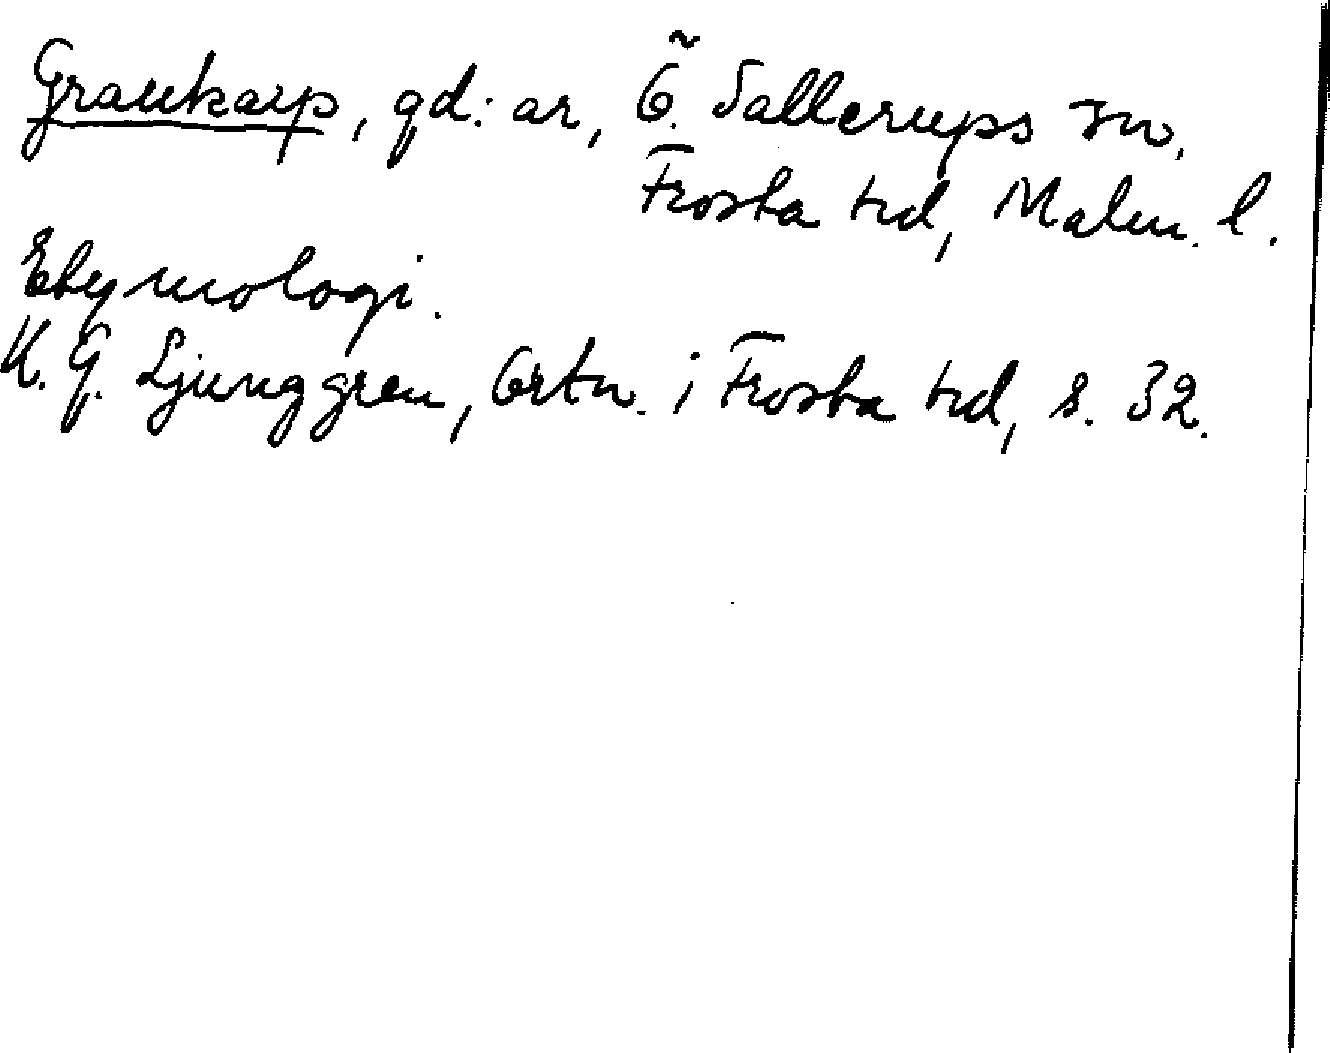 Grankarp, gd:ar, Ö. Sallerups sn,
Frosta hd, Malm. l.
Etymologi.
K. G. Ljunggren, Ortn. i Frosta hd, s. 32.